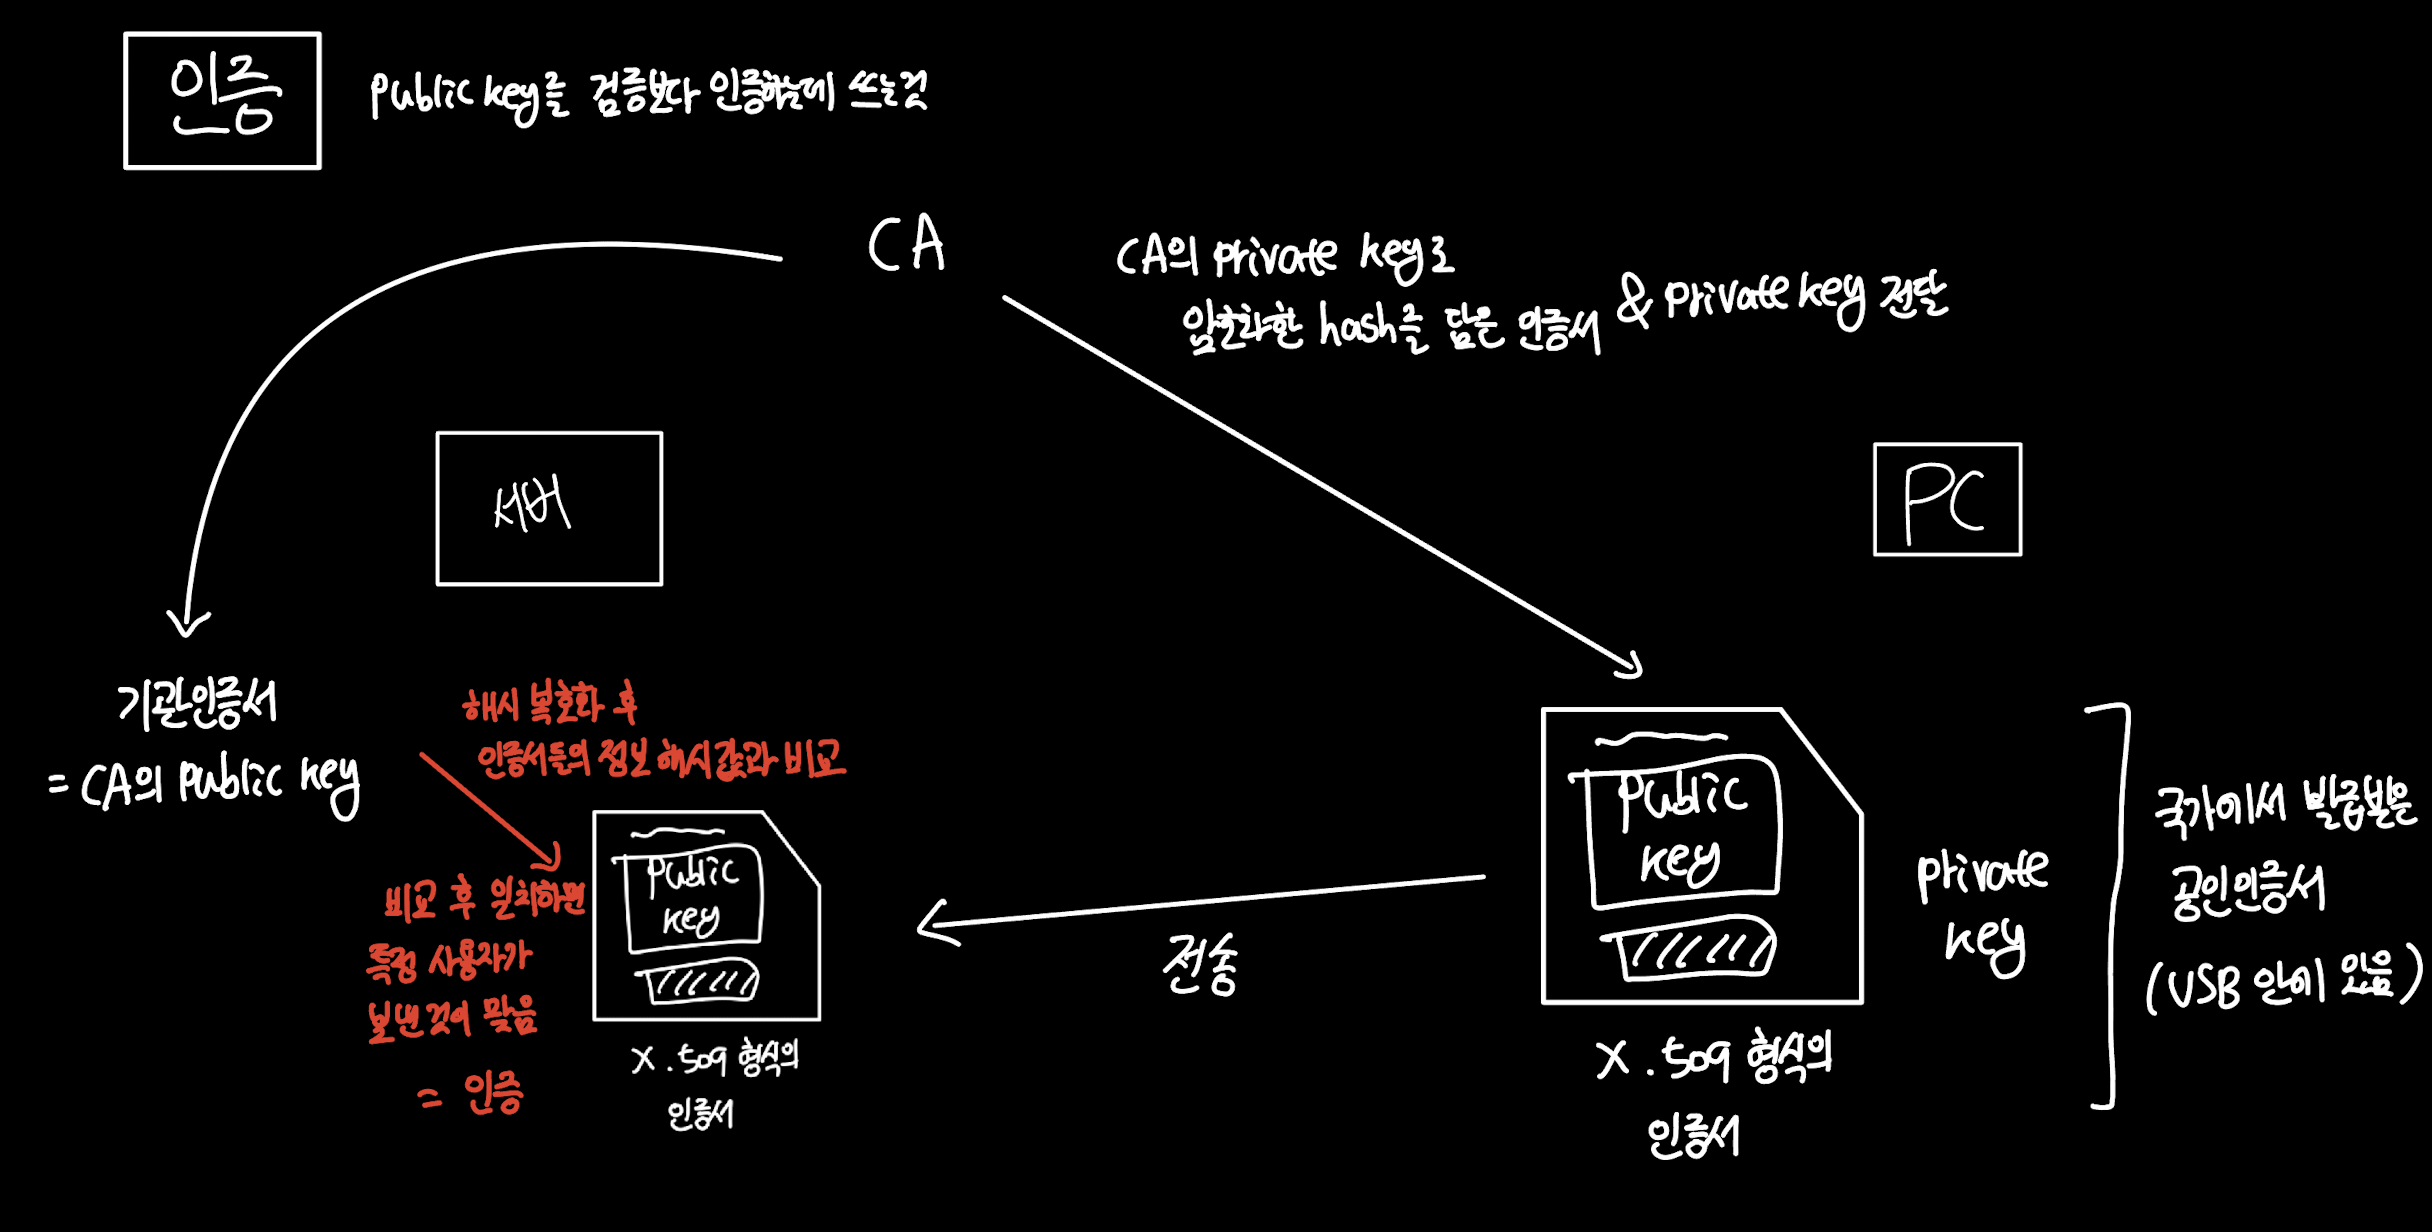 인증
Public key를 검증보다 인증하는데 쓰는것
CA
CA의 private key로
암호화한 hash를 담은 인증서 & private key 전달
서버
PC
기관인증서
= CA의 public key
해시 복호화 후
인증서들의 정보 해시값과 비교
비교 후 일치하면
특정 사용자가
보낸것이 맞음
= 인증
Public
key
X.509 형식의
인증서
전송
Public
key
X.509 형식의
인증서
private
key
국가에서 발급받은
공인인증서
(USB 안에 있음)